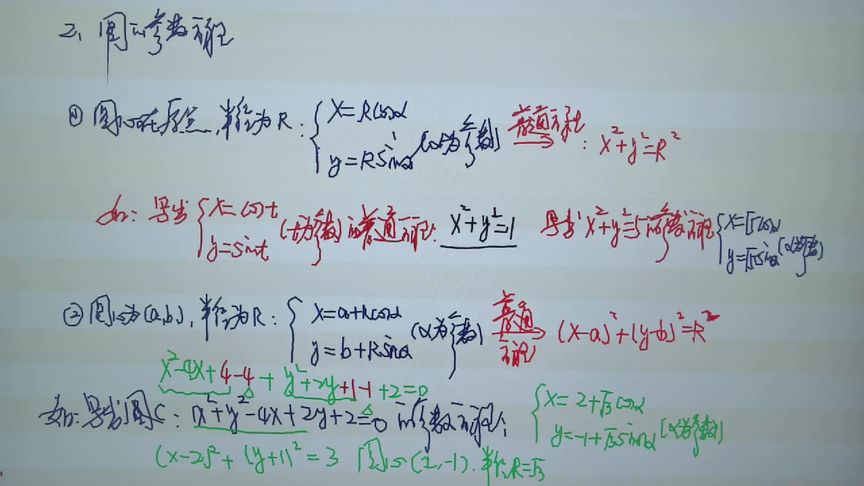 2、圆的参数方程
① 圆心在原点,半径为R: { x=Rcosα y=Rsinα (α为参数) 普通方程: x²+y²=R²
如: 写出 { x=cost y=sint (t为参数) 的普通方程: x²+y²=1 写出 x²+y²=5的参数方程 { x=√5cosα y=√5sinα (α为参数)
② 圆心为(a,b), 半径为R: { x=a+Rcosα y=b+Rsinα (α为参数) 普通方程 (x-a)²+(y-b)²=R²
x²-4x+4-4+y²+2y+1-1+2=0
如: 写出圆C: x²+y²-4x+2y+2=0 的参数方程: { x=2+√3cosα y=-1+√3sinα (α为参数)
(x-2)²+(y+1)²=3 圆心(2,-1). 半径R=√3